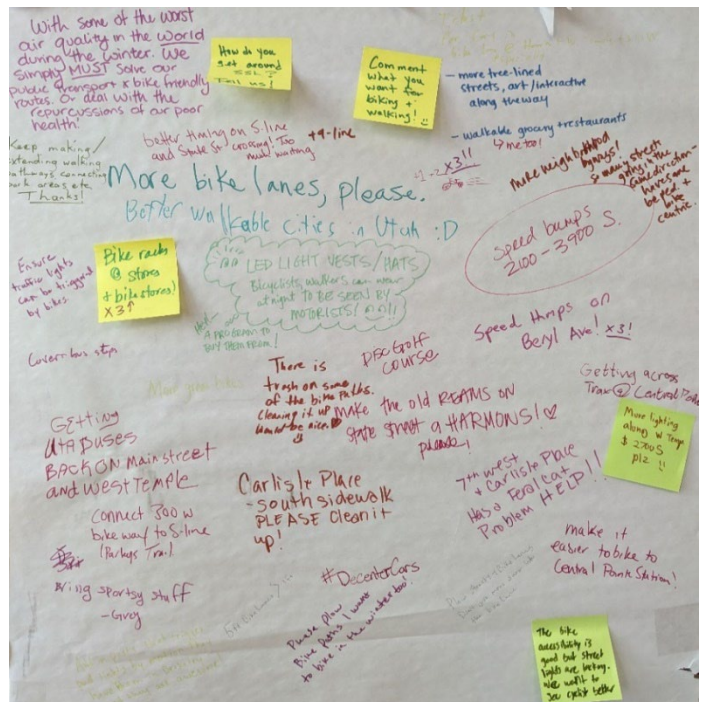 With some of the worst
air quality in the World
during the winter. We
simply MUST solve our
public transport & bike friendly
routes. Or deal with the
repurcussions of our poor
health!
How do you
get around
SSL?
Tell us!
Comment
what you
want for
biking +
walking!
- more tree-lined
streets, art/interactive
along the way
- walkable grocery + restaurants
me too!
Keep making/
extending walking
pathways connecting
park areas, etc.
Thanks!
better timing on S-line
and State St. crossing! Too
much waiting
+9-line
More bike lanes, please.
Better walkable cities in Utah :D
x3!!
more neighborhood
byways!
many streets
going in the
same direction -
have one
be ped +
bike
centric.
Speed bumps
2100 - 3900 S.
Ensure
traffic lights
can be triggered
by bikes.
Bike racks
@ stores
+ bike stores!
x3!
LED LIGHT VESTS/HATS
Bicyclists, walkers can wear
at night TO BE SEEN BY
MOTORISTS!
A PROGRAM TO
BUY THEM FROM!
Speed Humps on
Beryl Ave! x3!
Cover bus stops
There is
trash on some
of the bike paths.
Cleaning it up
would be nice.
DISC Golf
course
Getting across
Trax @ Central Pointe
make the old REAMS ON
State street a HARMONS!
please!
More lighting
along W Temp
& 2700 S
plz !!
Getting
UTA BUSES
BACK ON Main street
and West Temple
Carlisle Place
- south sidewalk
PLEASE Clean it
up!
7th west
+ Carlisle Place
Has a Feral Cat
Problem HELP!!
Connect 300 W
bike way to S-line
(Parleys Trail)
make it
easier to bike to
Central Pointe Station!
Bring sportsy stuff
- Greg
#DecenterCars
Please plow
Bike paths I want
to bike in the winter too!
The bike
accessibility is
good but street
lights are lacking.
We want to
see cyclist better